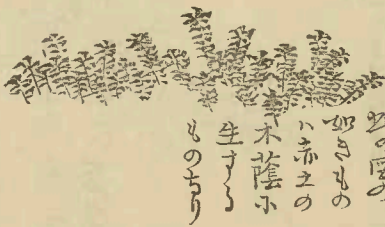 此の図の
如きもの
ハ赤土の
木蔭小
生する
ものなり